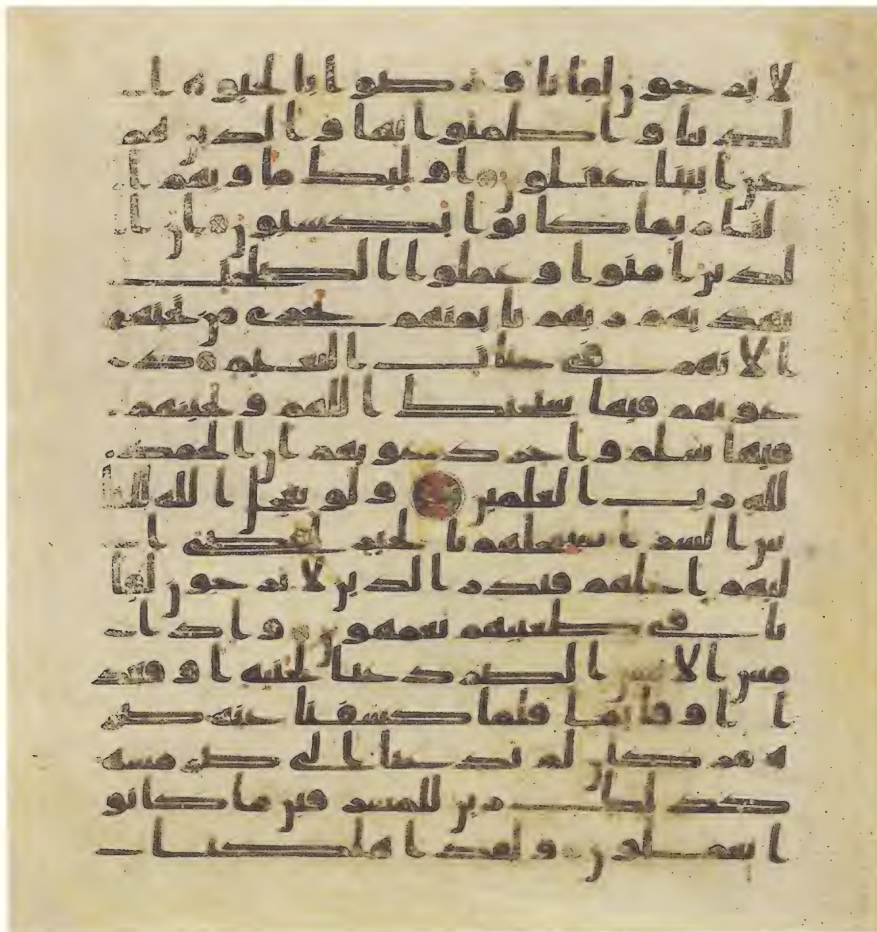 لا يرجون لقانا و رضوا بالحيوه ا
لدنيا و اطمنوا بها و الذين هم
عن ايتنا غفلون اوليك ماويهم ا
لنار بما كانوا يكسبون ان ا
لذين امنوا و عملوا الصلحت
يهديهم ربهم بايمنهم تجري من تحتهم
الانهر في جنت النعيم د
عويهم فيها سبحنك اللهم و تحيتهم
فيها سلم و اخر دعويهم ان الحمد
لله رب العلمين و لو يعجل الله للنا
س الشر استعجلهم بالخير لقضي ا
ليهم اجلهم فنذر الذين لا يرجون لقا
نا في طغينهم يعمهون و اذا
مس الانسن الضر دعنا لجنبه او قعد
ا او قايما فلما كشفنا عنه ضر
ه مر كان لم يدعنا الى ضر مسه
كذلك زين للمسرفين ما كانو
ا يعملون و لقد اهلكنا